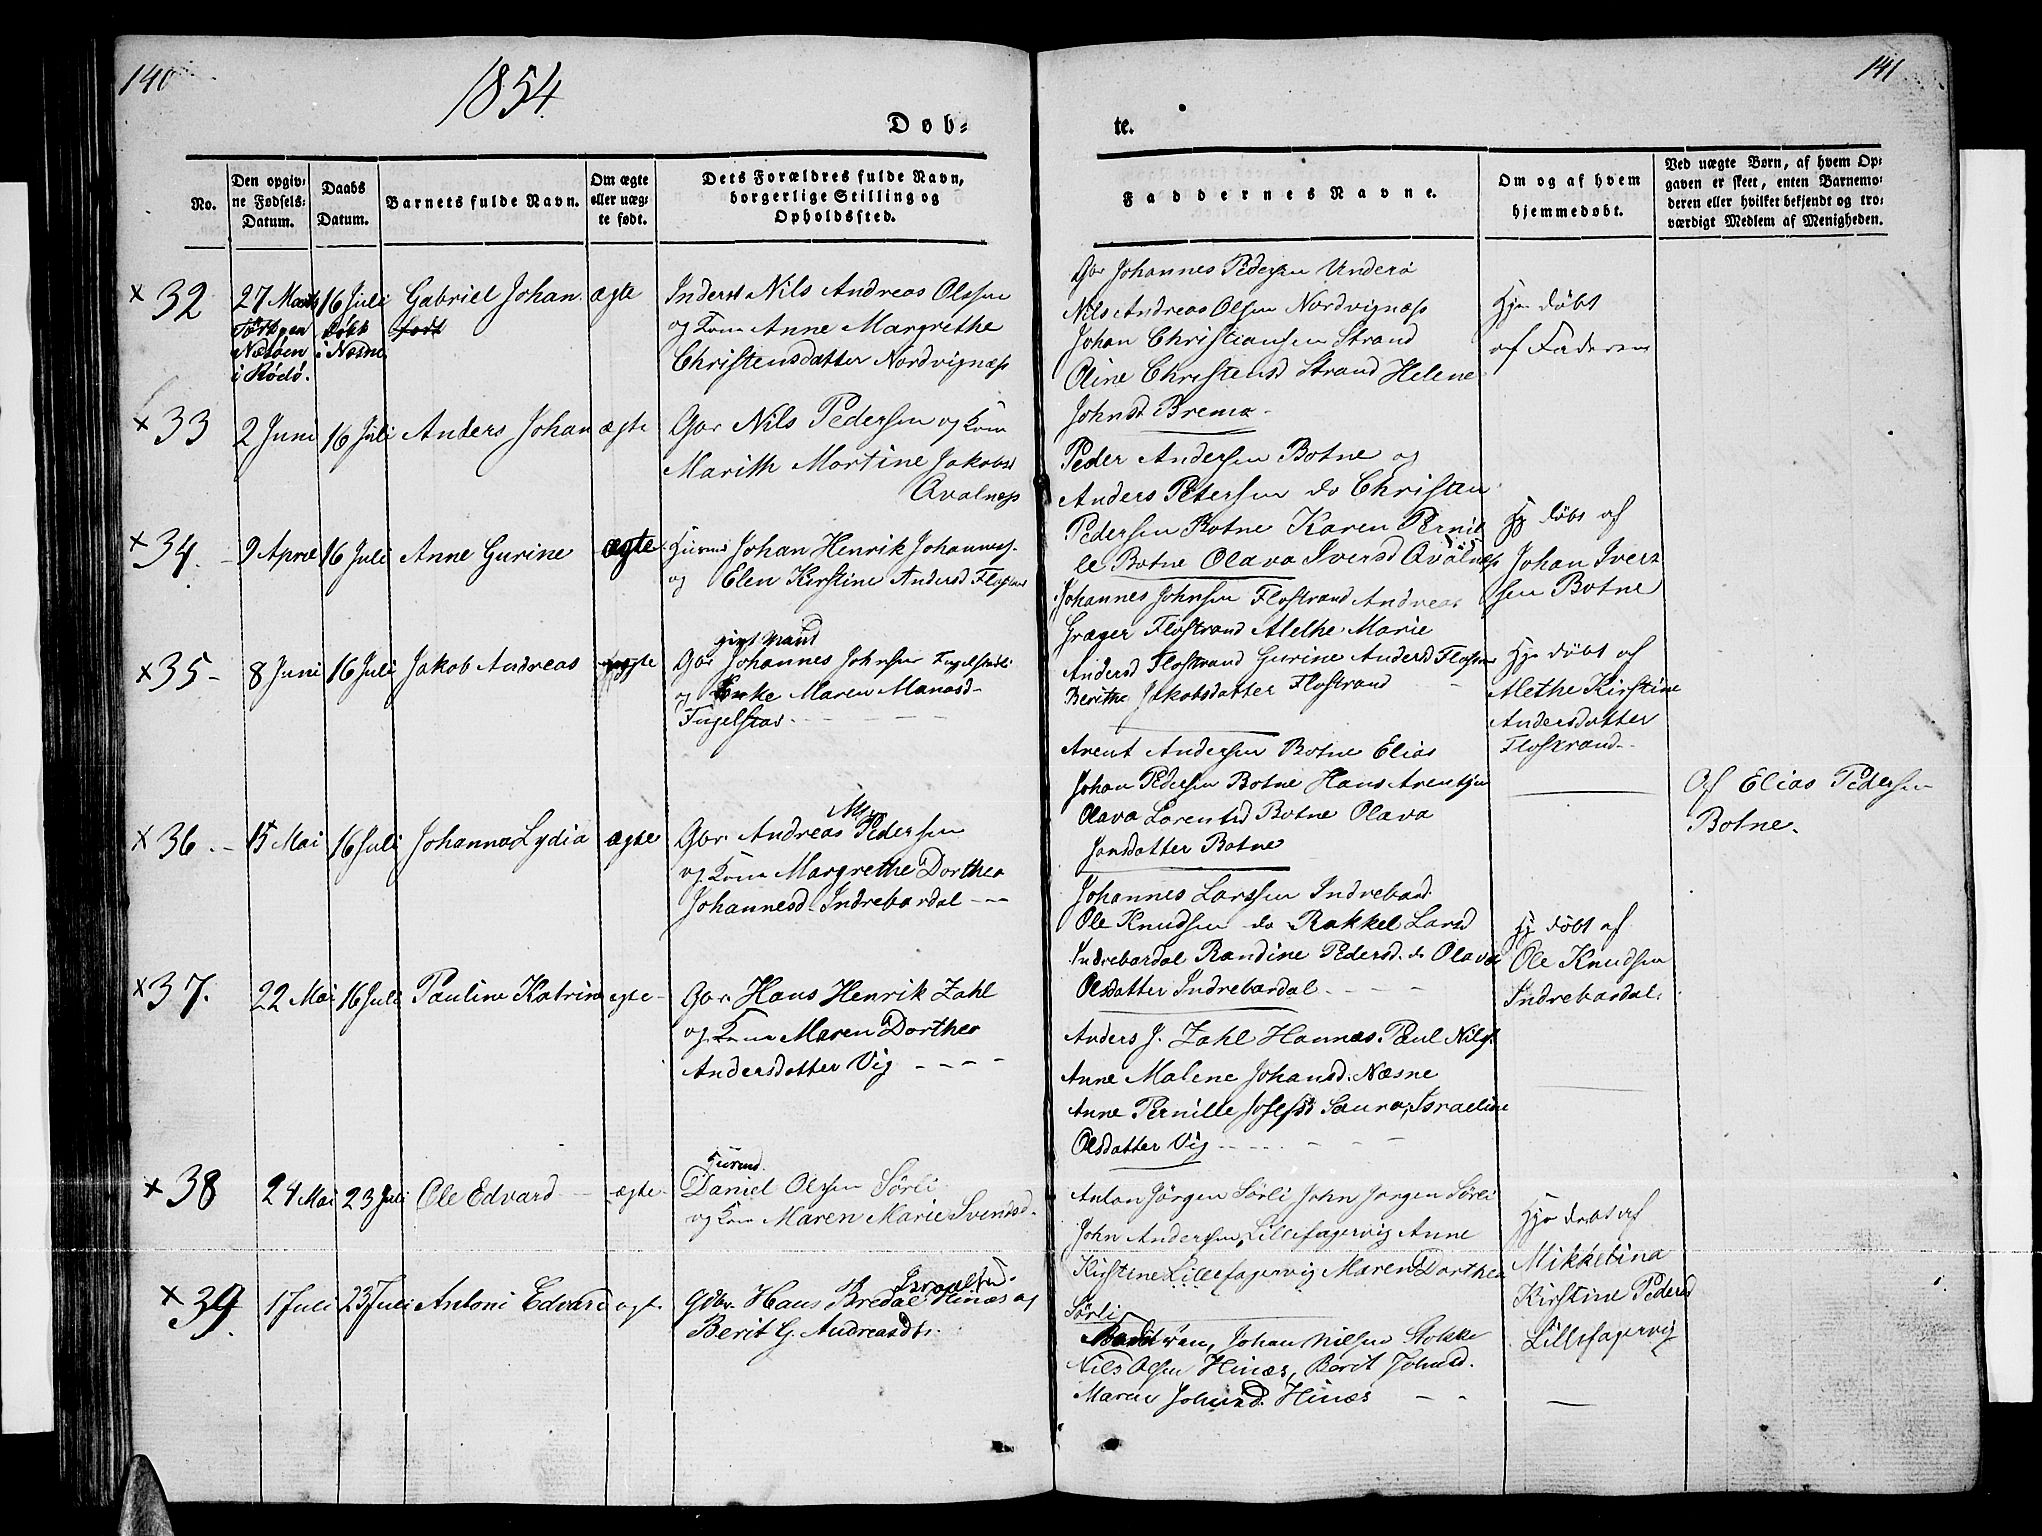 140
1854.
141
Døb-
te.
No.
Den opgiv-
ne Fødsels-
Datum.
Daabs
Datum.
Barnets fulde Navn.
Om ægte
eller uæg-
te født.
Dets Forældres fulde Navn,
borgerlige Stilling og
Opholdssted.
Faddernes Navne.
Om og af hvem
hjemmedøbt.
Ved uægte Børn, af hvem Op-
gaven er skeet, enten Barnemo-
deren eller hvilket bekjendt og tro-
værdigt Medlem af Menigheden.
× 32
27 Marts
Næsøen
i Rødø.
16 Juli
døbt
i Næsne
Gabriel Johan
født
ægte
Inderst Nils Andreas Olssen
og Kone Anne Margrethe
Christensdatter Nordvignæss
Gbr Johannes Pedersen Underø
Nils Andreas Olsen Nordvignæss
Johan Christiansen Strand
Oline Christensd Strand Helene
Johnsd Bremo
Hje døbt
af Faderen
× 33
2 Juni
16 Juli
Anders Johan
ægte
Gbr Nils Pedersen og Kone
Marith Martine Jakobsd
Avalnæss
Peder Andersen Botne og
Anders Petersen do Christen
Pedersen Botne Karen Pernil
le Botne Olava Iversd Avalnæss
Hj døbt af
Johan Iver
sen Botne
× 34.
9 April
16 Juli
Anne Gurine
ægte
Huusmd Johan Henrik Johannes.
og Elen Kirstine Andersd Flostrand
Johannes Johnsen Flostrand Andreas
Græger Flostrand Alethe Marie
Andersd Flostrand Gurine Andersd Flostrand
Berithe Jakobsdatter Flostrand
Hje døbt af
Alethe Kirstine
Andersdatter
Flostrand
× 35
8 Juni
16 Juli
Jakob Andreas
uægte
gift Mand
Gbr Johannes Johnsen Fugelstadli
og Enke Maren Manasd
Fugelstad
Arent Andersen Botne Elias
Johan Pedersen Botne Hans Arentsen
Olava Lorentsd Botne Olava
Jonsdatter Botne
Af Elias Pedersen
Botne.
× 36.
15 Mai
16 Juli
Johanna Lydia
ægte
Gbr. Andreas Pedersen
og Kone Margrethe Dorthea
Johannesd Indrebardal
Johannes Larssen Indrebard.
Ole Knudsen do Rakkel Larsd
Indrebardal Randine Pedersd. do Olava
Olsdatter Indrebardal
Hj døbt af
Ole Knudsen
Indrebardal.
× 37.
22 Mai
16 Juli
Pauline Katrine
egte
Gbr. Hans Henrik Zahl
og Kone Maren Dorthea
Andersdatter Vig
Anders J. Zahl Hannæs Paul Nils.
Anne Malene Johansd. Næsne
Anne Pernille Josefsd Saura, Israeline
Olsdatter Vig
× 38
24 Mai
23 Juli
Ole Edvard
ægte
Huusmd.
Daniel Olssen Sørli
og Kone Maren Marie Svendsd.
Anton Jørgen Sørli John Jørgen Sørli
John Andersen Lillefagervig Anne
Kirstine Lillefagervig Maren Dorthea
Sørli
Hje døbt af
Mikkelina
Kirstine Pedersd
Lillefagervig
× 39.
1 Juli
23 Juli
Antoni Edvard
egte
Israelsen
Gdbr. Hans Bredal Hinæs og
Berit G. Andreasdtr.
Johan Nilsen Stokke
Nils Olsen Hinæs, Berit Johnsd.
Maren Johnsd. Hinæs